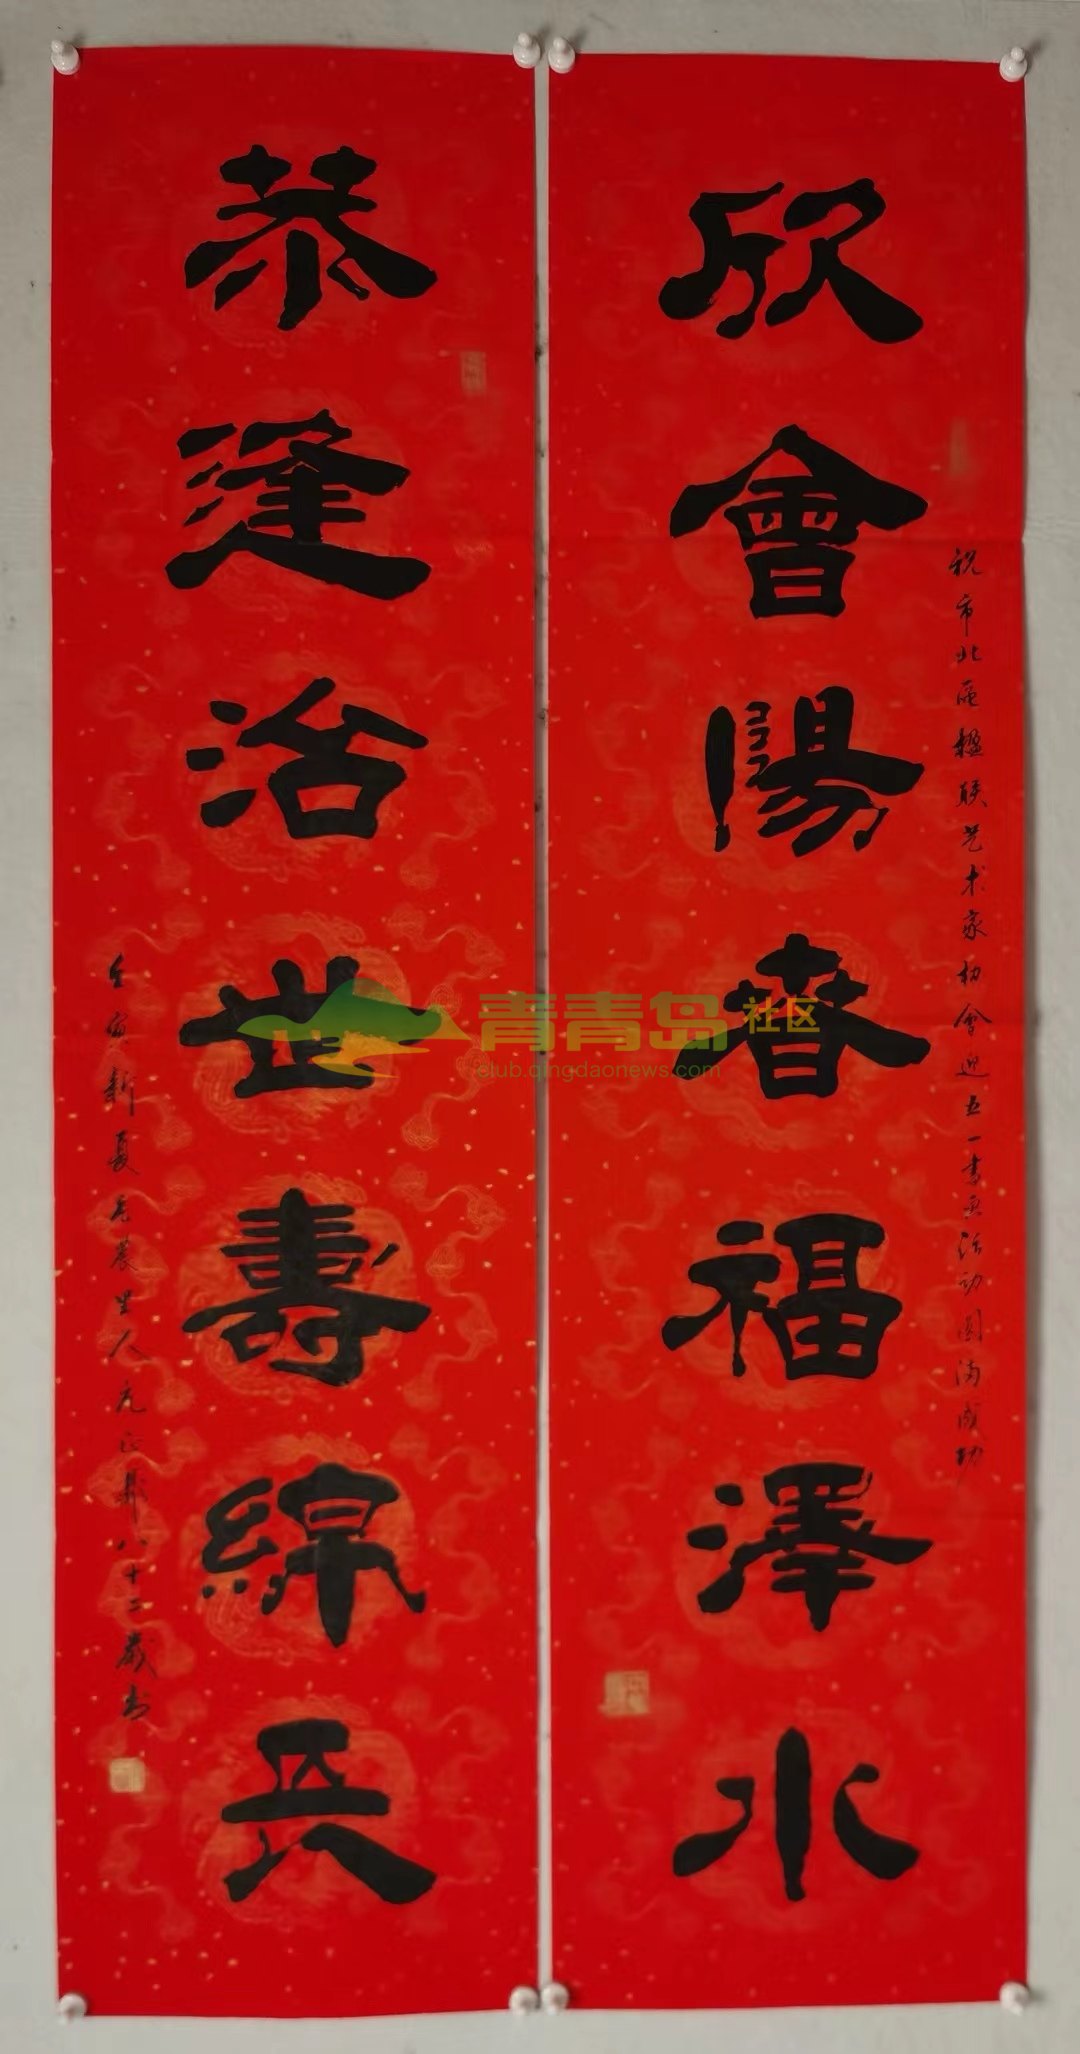 欣會陽春福澤水
祝市北区楹联艺术家协會迎五一書画活动圆满成功
恭逢治世壽綿長
壬寅新夏
八十二歲书
青青岛社区
club.qingdaonews.com